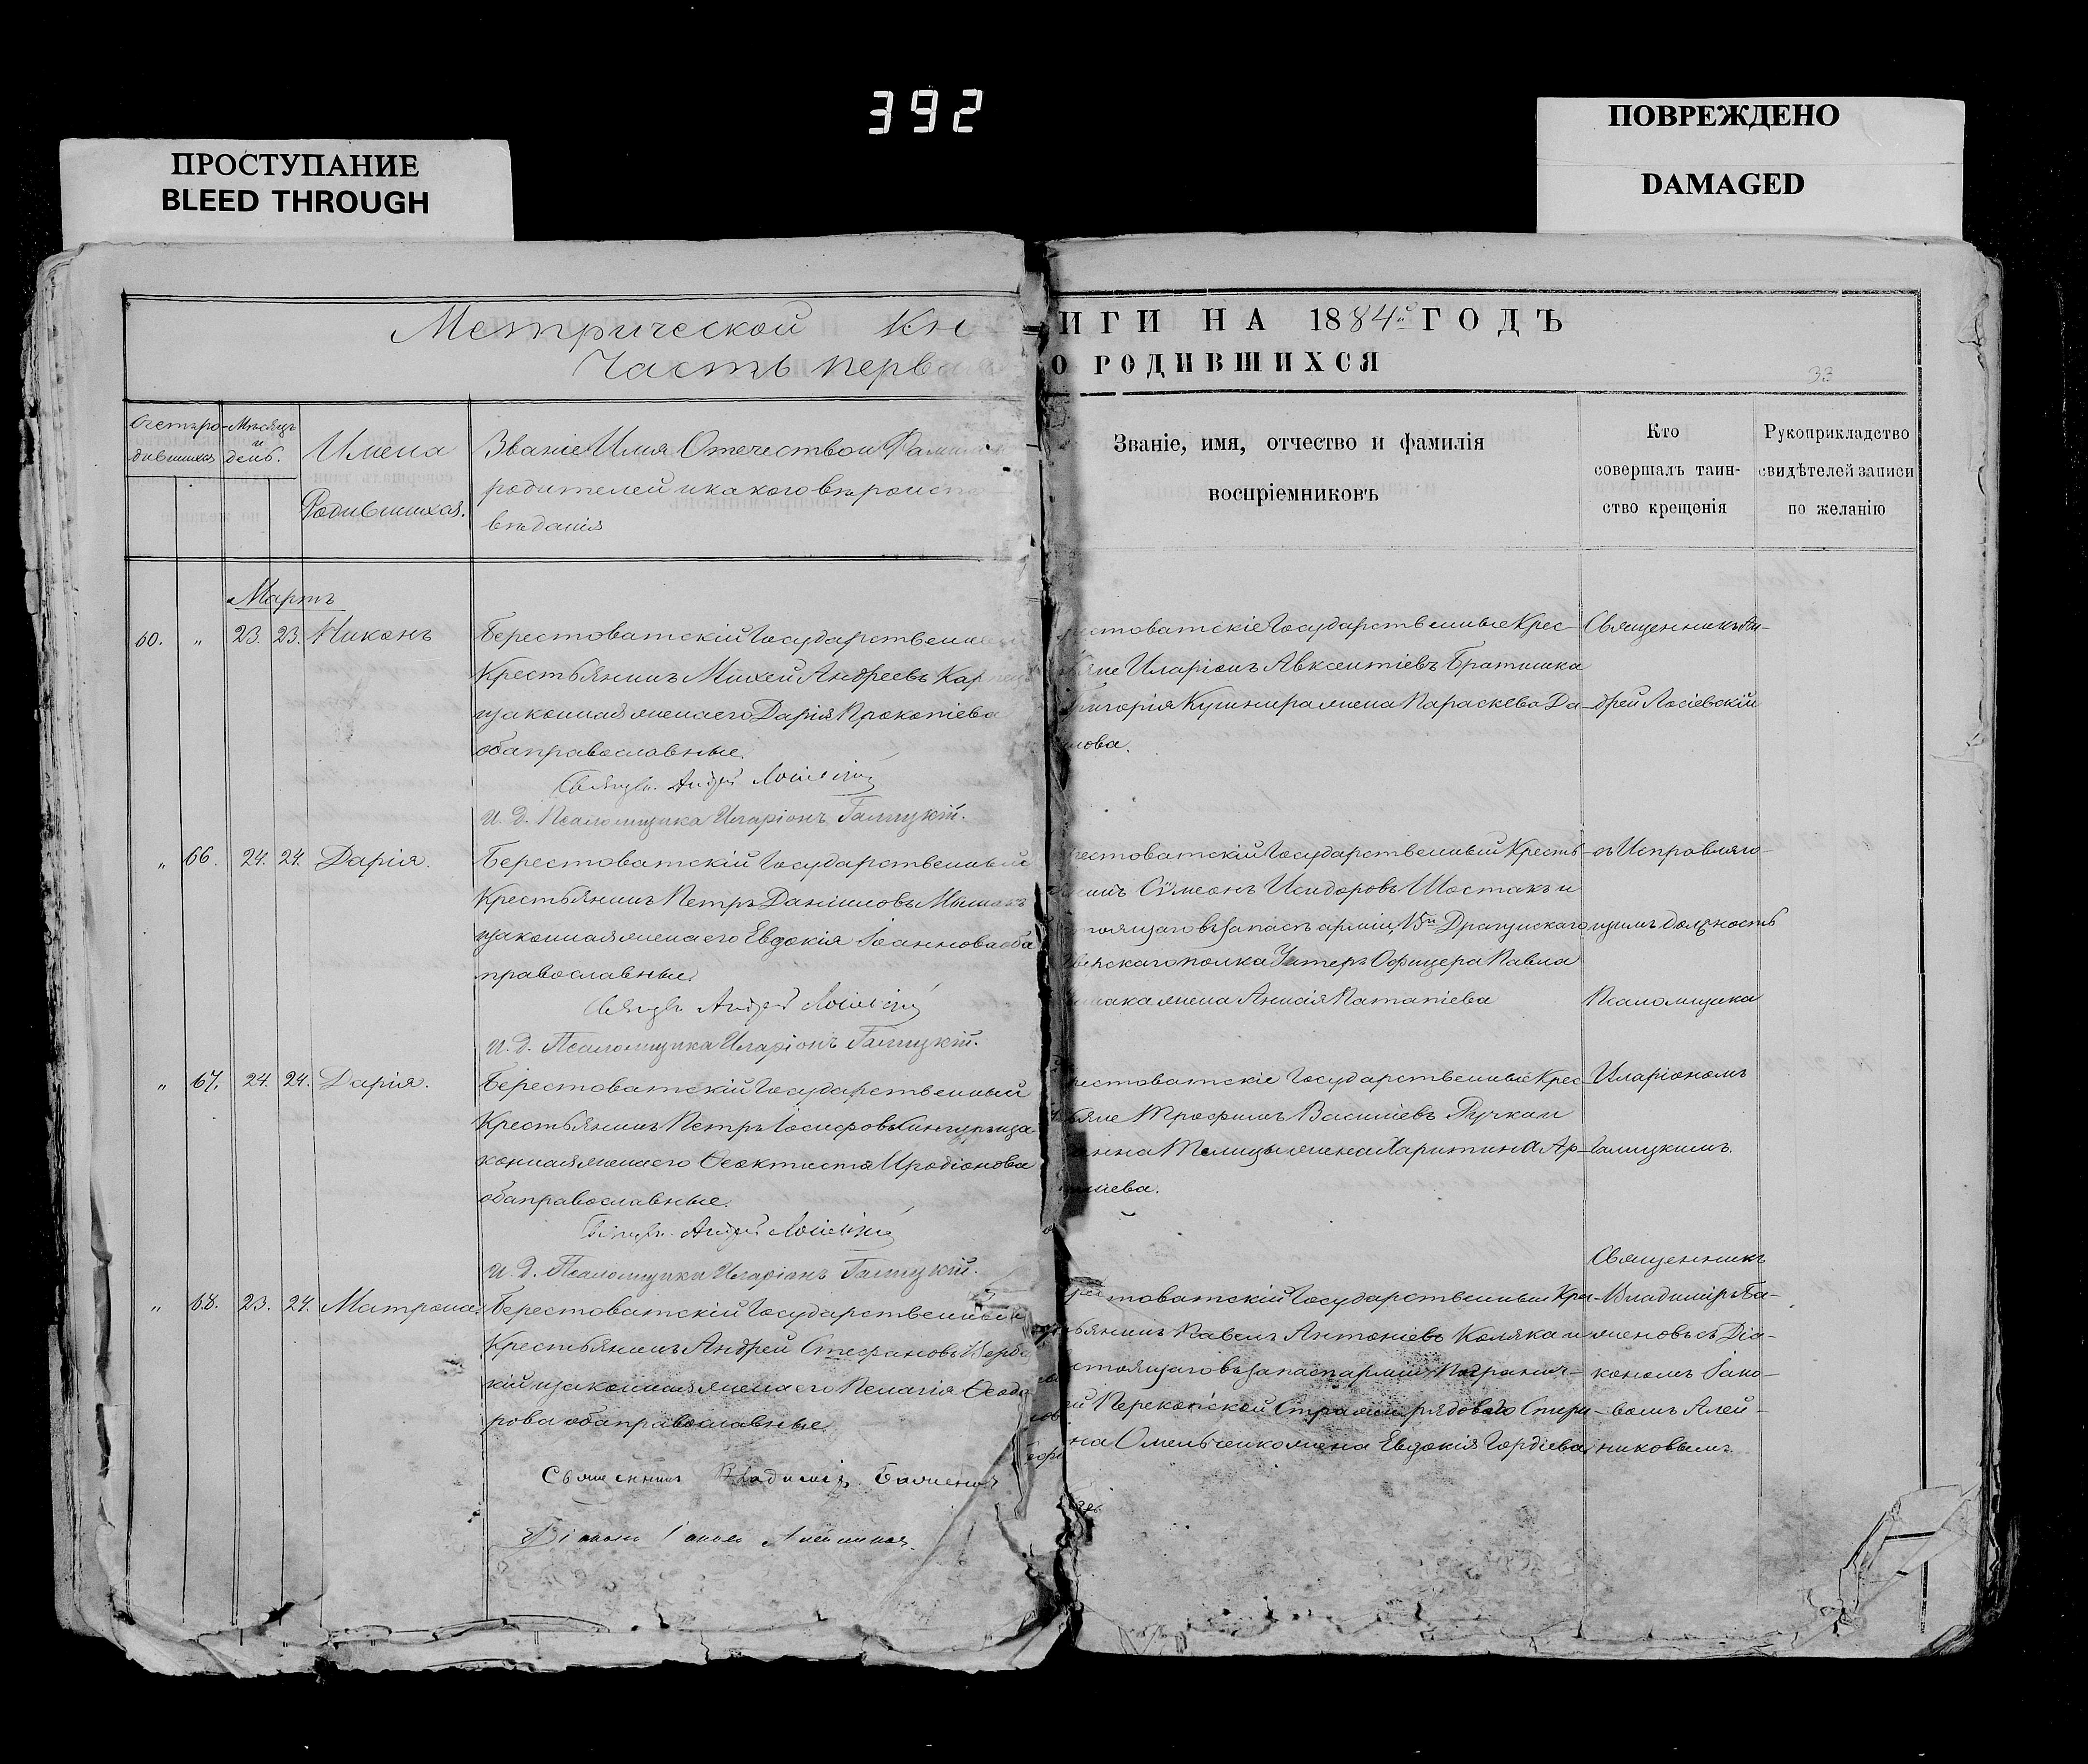 392
ПРОСТУПАНИЕ
BLEED THROUGH
ПОВРЕЖДЕНО
DAMAGED
Метрической Кн
ИГИ НА 1884й ГОДЪ
Часть перва
О РОДИВШИХСЯ
33
Счетъ родившихся
Мѣсяцъ и день.
Имена
Родившихся.
Званіе Имя Отечество и Фамилія
родителей и какого вѣроиспо
вѣданія
Званіе, имя, отчество и фамилія
воспріемниковъ
Кто
совершалъ таин-
ство крещенія
Рукоприкладство
свидѣтелей записи
по желанію
Мартъ
60. " 23. 23. Никонъ
Берестоватскій Государственный
Крестьянинъ Михей Андреевъ
и законная жена его Дарія Прокопіева
оба православные.
Священ. Андрей Лосіевскій
И. д. Псаломщика Иларіонъ Галицкій.
рестоватскіе Государственные Крес-
яне Иларіонъ Авксентіевъ Братишка
Григорія Кушнира жена Параскева Да-
лова.
Священникъ Ан-
дрей Лосіевскій
" 66. 24. 24. Дарія.
Берестоватскій Государственный
Крестьянинъ Петръ Даніиловъ
и законная жена его Евдокія Іоаннова оба
православные.
Священ. Андрей Лосіевскій
И. д. Псаломщика Иларіонъ Галицкій.
рестоватскій Государственный Кресть-
нинъ Сѵмеонъ Исидоровъ Шостакъ и
тоящаго въ запасѣ арміи, 15го Драгунскаго
полка Унтеръ Офицера Павла
жена Анна Ипатіева
съ Исправляю-
щимъ должность
Псаломщика
" 67. 24. 24. Дарія.
Берестоватскій Государственный
Крестьянинъ Петръ Іосифовъ и за
конная жена его Ѳеоктиста Иродіонова
оба православные.
Священ. Андрей Лосіевскій
И. д. Псаломщика Иларіонъ Галицкій.
рестоватскіе Государственные Крес-
ьяне Трофимъ Василіевъ Ручка и
жена Харитина Ар-
Иларіономъ
Галицкимъ.
" 68. 23. 24. Матрона.
Берестоватскій Государственный
Крестьянинъ Андрей Стефановъ
кій и законная жена его Пелагія Ѳеодо
рова оба православные.
Священникъ Владиміръ Баженовъ
Діаконъ Іаковъ Алейниковъ.
товатскій Государственный Кре-
ьянинъ Павелъ Антоніевъ Коляка и
стоящаго въ запасѣ арміи Погранич-
й Перекопской Стражи рядоваго Спири-
на Омельченко жена Евдокія Гордіева
Священникъ
Владиміръ Ба-
женовъ съ Діа-
кономъ Іако-
вомъ Алей-
никовымъ